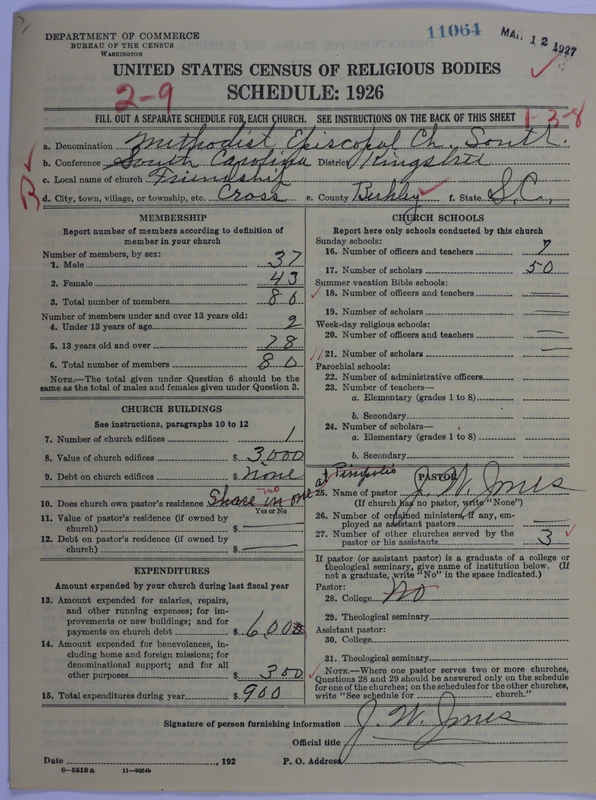 DEPARTMENT OF COMMERCE
BUREAU OF THE CENSUS
WASHINGTON
11064
MAR 12 1927
UNITED STATES CENSUS OF RELIGIOUS BODIES
SCHEDULE: 1926
2-9
1-3-8
FILL OUT A SEPARATE SCHEDULE FOR EACH CHURCH. SEE INSTRUCTIONS ON THE BACK OF THIS SHEET
a. Denomination Methodist Episcopal Ch. South.
b. Conference South Carolina District Kingstree
c. Local name of church Friendship
d. City, town, village, or township, etc. Cross e. County Berkley f. State S.C.,
3
MEMBERSHIP
Report number of members according to definition of member in your church
Number of members, by sex:
1. Male 37
2. Female 43
3. Total number of members 80
Number of members under and over 13 years old:
4. Under 13 years of age 2
5. 13 years old and over 78
6. Total number of members 80
NOTE.—The total given under Question 6 should be the same as the total of males and females given under Question 3.
CHURCH BUILDINGS
See instructions, paragraphs 10 to 12
7. Number of church edifices 1
8. Value of church edifices $ 3,000
9. Debt on church edifices $ None
10. Does church own pastor's residence Share in one at Pinopolis
no
Yes or No
11. Value of pastor's residence (if owned by church) $ —
12. Debt on pastor's residence (if owned by church) $ —
EXPENDITURES
Amount expended by your church during last fiscal year
13. Amount expended for salaries, repairs, and other running expenses; for improvements or new buildings; and for payments on church debt $ 600
14. Amount expended for benevolences, including home and foreign missions; for denominational support; and for all other purposes $ 300
15. Total expenditures during year $ 900
CHURCH SCHOOLS
Report here only schools conducted by this church
Sunday schools:
16. Number of officers and teachers 7
17. Number of scholars 50
Summer vacation Bible schools:
18. Number of officers and teachers —
19. Number of scholars —
Week-day religious schools:
20. Number of officers and teachers —
21. Number of scholars —
Parochial schools:
22. Number of administrative officers
23. Number of teachers—
a. Elementary (grades 1 to 8)
b. Secondary
24. Number of scholars—
a. Elementary (grades 1 to 8)
b. Secondary
PASTOR
25. Name of pastor J. W. Jones
(If church has no pastor, write "None")
26. Number of ordained ministers, if any, employed as assistant pastors —
27. Number of other churches served by the pastor or his assistants 3
If pastor (or assistant pastor) is a graduate of a college or theological seminary, give name of institution below. (If not a graduate, write "No" in the space indicated.)
Pastor:
28. College No
29. Theological seminary
Assistant pastor:
30. College
31. Theological seminary
NOTE.—Where one pastor serves two or more churches, Questions 28 and 29 should be answered only on the schedule for one of the churches; on the schedules for the other churches, write "See schedule for church."
Signature of person furnishing information J. W. Jones
Official title
Date , 192 P. O. Address
6—5518a 11—9554b